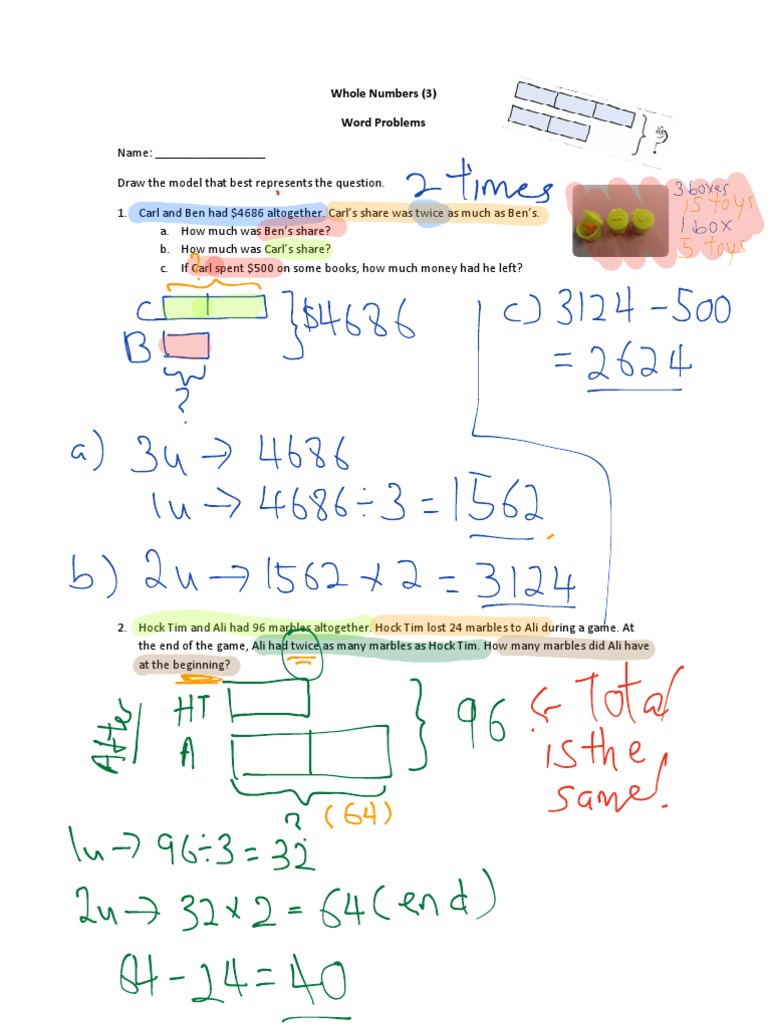 Whole Numbers (3)
Word Problems
?
Name: ___________________
Draw the model that best represents the question.
2 times
3 boxes
15 toys
1 box
5 toys
1. Carl and Ben had $4686 altogether. Carl's share was twice as much as Ben's.
a. How much was Ben's share?
b. How much was Carl's share?
c. If Carl spent $500 on some books, how much money had he left?
?
C
B
$4686
?
c) 3124 - 500
= 2624
a) 3u → 4686
1u → 4686 ÷ 3 = 1562
b) 2u → 1562 × 2 = 3124
2. Hock Tim and Ali had 96 marbles altogether. Hock Tim lost 24 marbles to Ali during a game. At
the end of the game, Ali had twice as many marbles as Hock Tim. How many marbles did Ali have
at the beginning?
After
HT
A
96
← Total
is the
same!
? (64)
1u → 96 ÷ 3 = 32
2u → 32 × 2 = 64 (end)
64 - 24 = 40